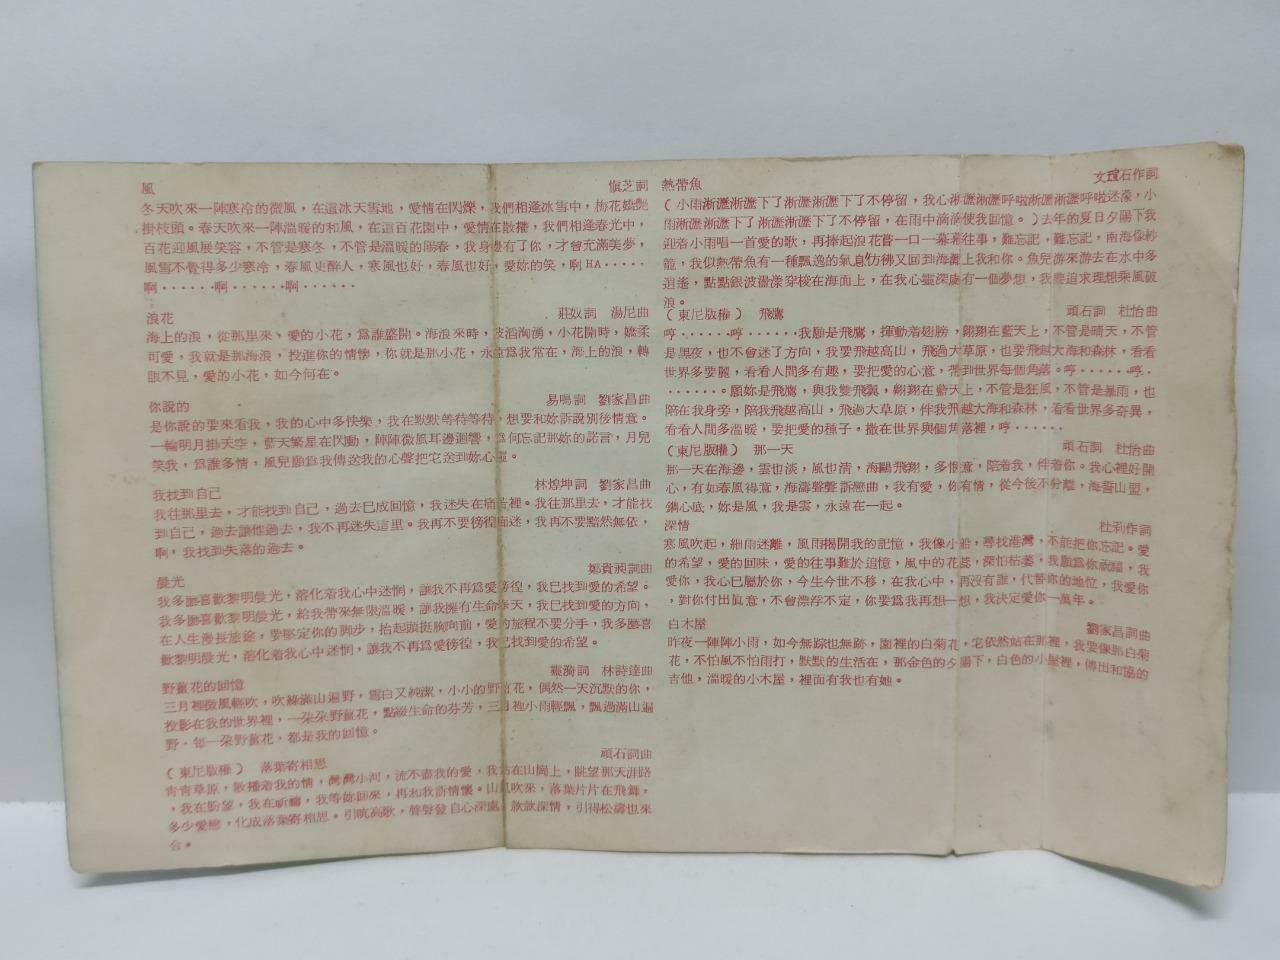 風　慎芝詞
冬天吹來一陣寒冷的微風，在這冰天雪地，愛情在閃爍，我們相逢冰雪中，梅花嬌艷
掛枝頭。春天吹來一陣溫暖的和風，在這百花園中，愛情在散播，我們相逢春光中，
百花迎風展笑容，不管是寒冬，不管是溫暖的陽春，我身邊有了你，才會充滿美夢，
風雪不覺得多少寒冷，春風更醉人，寒風也好，春風也好，愛妳的笑，啊HA‧‧‧‧‧
啊‧‧‧‧‧‧啊‧‧‧‧‧‧啊‧‧‧‧‧‧
浪花　莊奴詞　湯尼曲
海上的浪，從那里來、愛的小花，為誰盛開。海浪來時，波滔洶湧，小花開時，嬌柔
可愛，我就是那海浪，投進你的情懷，你就是那小花，永遠為我常在，海上的浪，轉
眼不見，愛的小花，如今何在。
你說的　易鳴詞　劉家昌曲
是你說的要來看我，我的心中多快樂，我在默默等待等待，想要和妳訴說別後情意。
一輪明月掛天空，藍天繁星在閃動，陣陣微風耳邊迴響，為何忘記那妳的諾言，月兒
笑我，為誰多情，風兒願為我傳送我的心聲把它送到妳心窩。
我找到自己　林煌坤詞　劉家昌曲
我往那里去，才能找到自己，過去已成回憶，我迷失在痛苦裡。我往那里去，才能找
到自己，過去讓他過去，我不再迷失這里。我再不要徬徨面迷，我再不要黯然無依，
啊，我找到失落的過去。
晨光　鄭貴昶詞曲
我多麼喜歡黎明晨光，溶化着我心中迷惘，讓我不再為愛徬徨，我已找到愛的希望。
我多麼喜歡黎明晨光，給我帶來無限溫暖，讓我擁有生命春天，我已找到愛的方向，
在人生漫長旅途，要堅定你的脚步，抬起頭挺胸向前，愛的旅程不要分手，我多麼喜
歡黎明晨光，溶化着我心中迷惘，讓我不再為愛徬徨，我已找到愛的希望。
野薑花的回憶　靈漪詞　林詩達曲
三月裡微風輕吹，吹綠滿山遍野，雪白又純潔，小小的野薑花，偶然一天沉默的你，
投影在我的世界裡，一朵朵野薑花，點綴生命的芬芳，三月裡小雨輕飄，飄過滿山遍
野，每一朵野薑花，都是我的回憶。
（東尼版權）　落葉寄相思　頑石詞曲
青青草原，散播着我的情，灣灣小河，流不盡我的愛，我站在山崗上，眺望那天涯路
，我在盼望，我在祈禱，我等妳回來，再和我訴情懷。山風吹來，落葉片片在飛舞，
多少愛戀，化成落葉寄相思。引吭高歌，聲聲發自心深處。款款深情，引得松濤也來
合。
熱帶魚　文瑄石作詞
（小雨淅瀝淅瀝下了淅瀝淅瀝下了不停留，我心淅瀝淅瀝呼啦淅瀝淅瀝呼啦迷濛，小
雨淅瀝淅瀝下了淅瀝淅瀝下了不停留，在雨中滴滴使我回憶。）去年的夏日夕陽下我
迎着小雨唱一首愛的歌，再捧起浪花嘗一口一幕幕往事，難忘記，難忘記，南海像紗
籠，我似熱帶魚有一種飄逸的氣息彷彿又回到海灘上我和你。魚兒游來游去在水中多
逍遙，點點銀波盪漾穿梭在海面上，在我心靈深處有一個夢想，我要追求理想乘風破
浪。
（東尼版權）　飛鷹　頑石詞　杜怡曲
哼‧‧‧‧‧‧哼‧‧‧‧‧‧我願是飛鷹，揮動着翅膀，翱翔在藍天上，不管是晴天，不管
是黑夜，也不會迷了方向，我要飛越高山，飛過大草原，也要飛越大海和森林，看看
世界多麼麗，看看人間多有趣，要把愛的心意，帶到世界每個角落。哼‧‧‧‧‧‧哼‧
‧‧‧‧‧‧。願妳是飛鷹，與我雙飛翼，翱翔在藍天上，不管是狂風，不管是暴雨，也
陪在我身旁，陪我飛越高山，飛過大草原，伴我飛越大海和森林，看看世界多奇異，
看看人間多溫暖，要把愛的種子。撒在世界與個角落裡，哼‧‧‧‧‧‧
（東尼版權）　那一天　頑石詞　杜怡曲
那一天在海邊，雲也淡，風也清，海鷗飛翔，多恨意，陪着我，伴着你。我心裡好開
心，有如春風得意，海濤聲聲訴戀曲，我有愛，你有情，從今後不分離，海誓山盟，
鎖心底，妳是風，我是雲，永遠在一起。
深情　杜莉作詞
寒風吹起，細雨迷離，風雨揭開我的記憶，我像小船，尋找港灣，不能把你忘記。愛
的希望，愛的回味，愛的往事難於追憶，風中的花蕊，深怕枯萎，我願為你祝福，我
愛你，我心巳屬於你，今生今世不移，在我心中，再沒有誰，代替你的地位，我愛你
，對你付出眞意，不會漂浮不定，你要為我再想一想，我決定愛你一萬年。
白木屋　劉家昌詞曲
昨夜一陣陣小雨，如今無踪也無跡，園裡的白菊花，它依然站在那裡，我要像那白菊
花，不怕風不怕雨打，默默的生活在，那金色的夕陽下，白色的小屋裡，傳出和協的
吉他，溫暖的小木屋，裡面有我也有她。